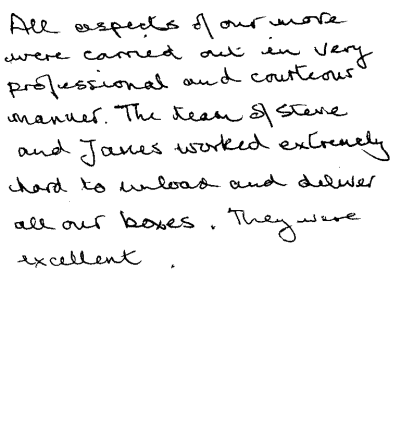 All aspects of our move
were carried out in very
professional and courteous
manner. The team of Steve
and James worked extremely
hard to unload and deliver
all our boxes. They were
excellent.